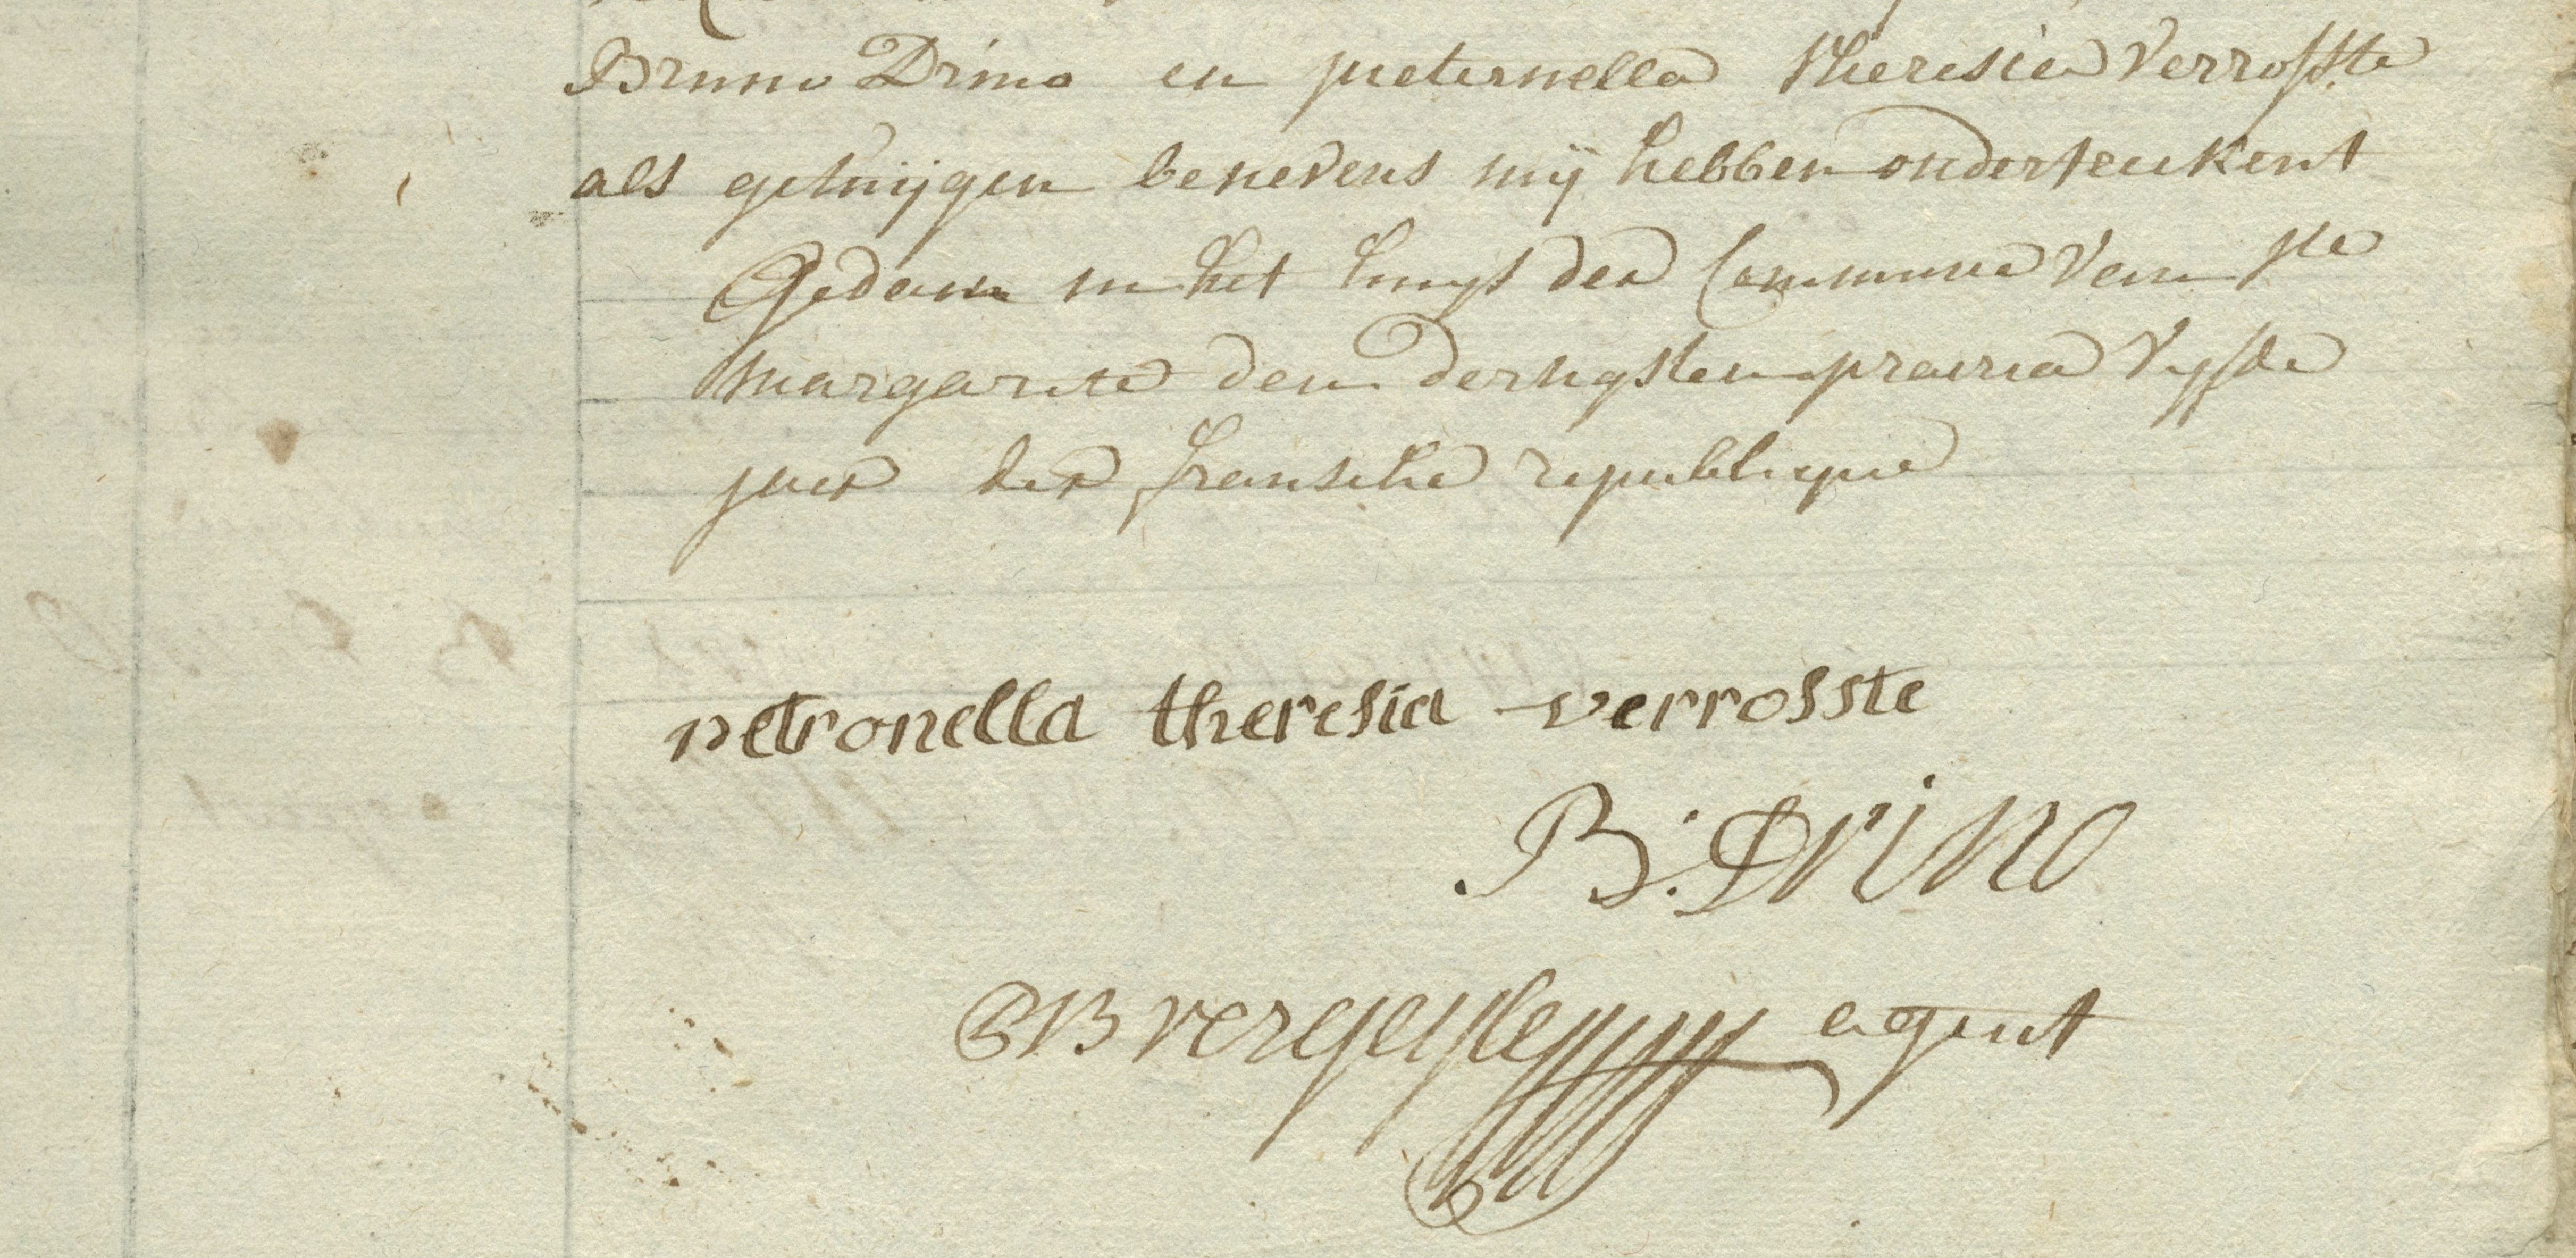 Bruno Drino en pieternella theresia Verrosste
als getuijgen benevens mij hebben onderteekent
Gedaen in het huys der Commune Van ste
margarite den dertigsten prairia Vyfde
jaer der fransche republique
petronella theresia verrosste
B: Drino
agent